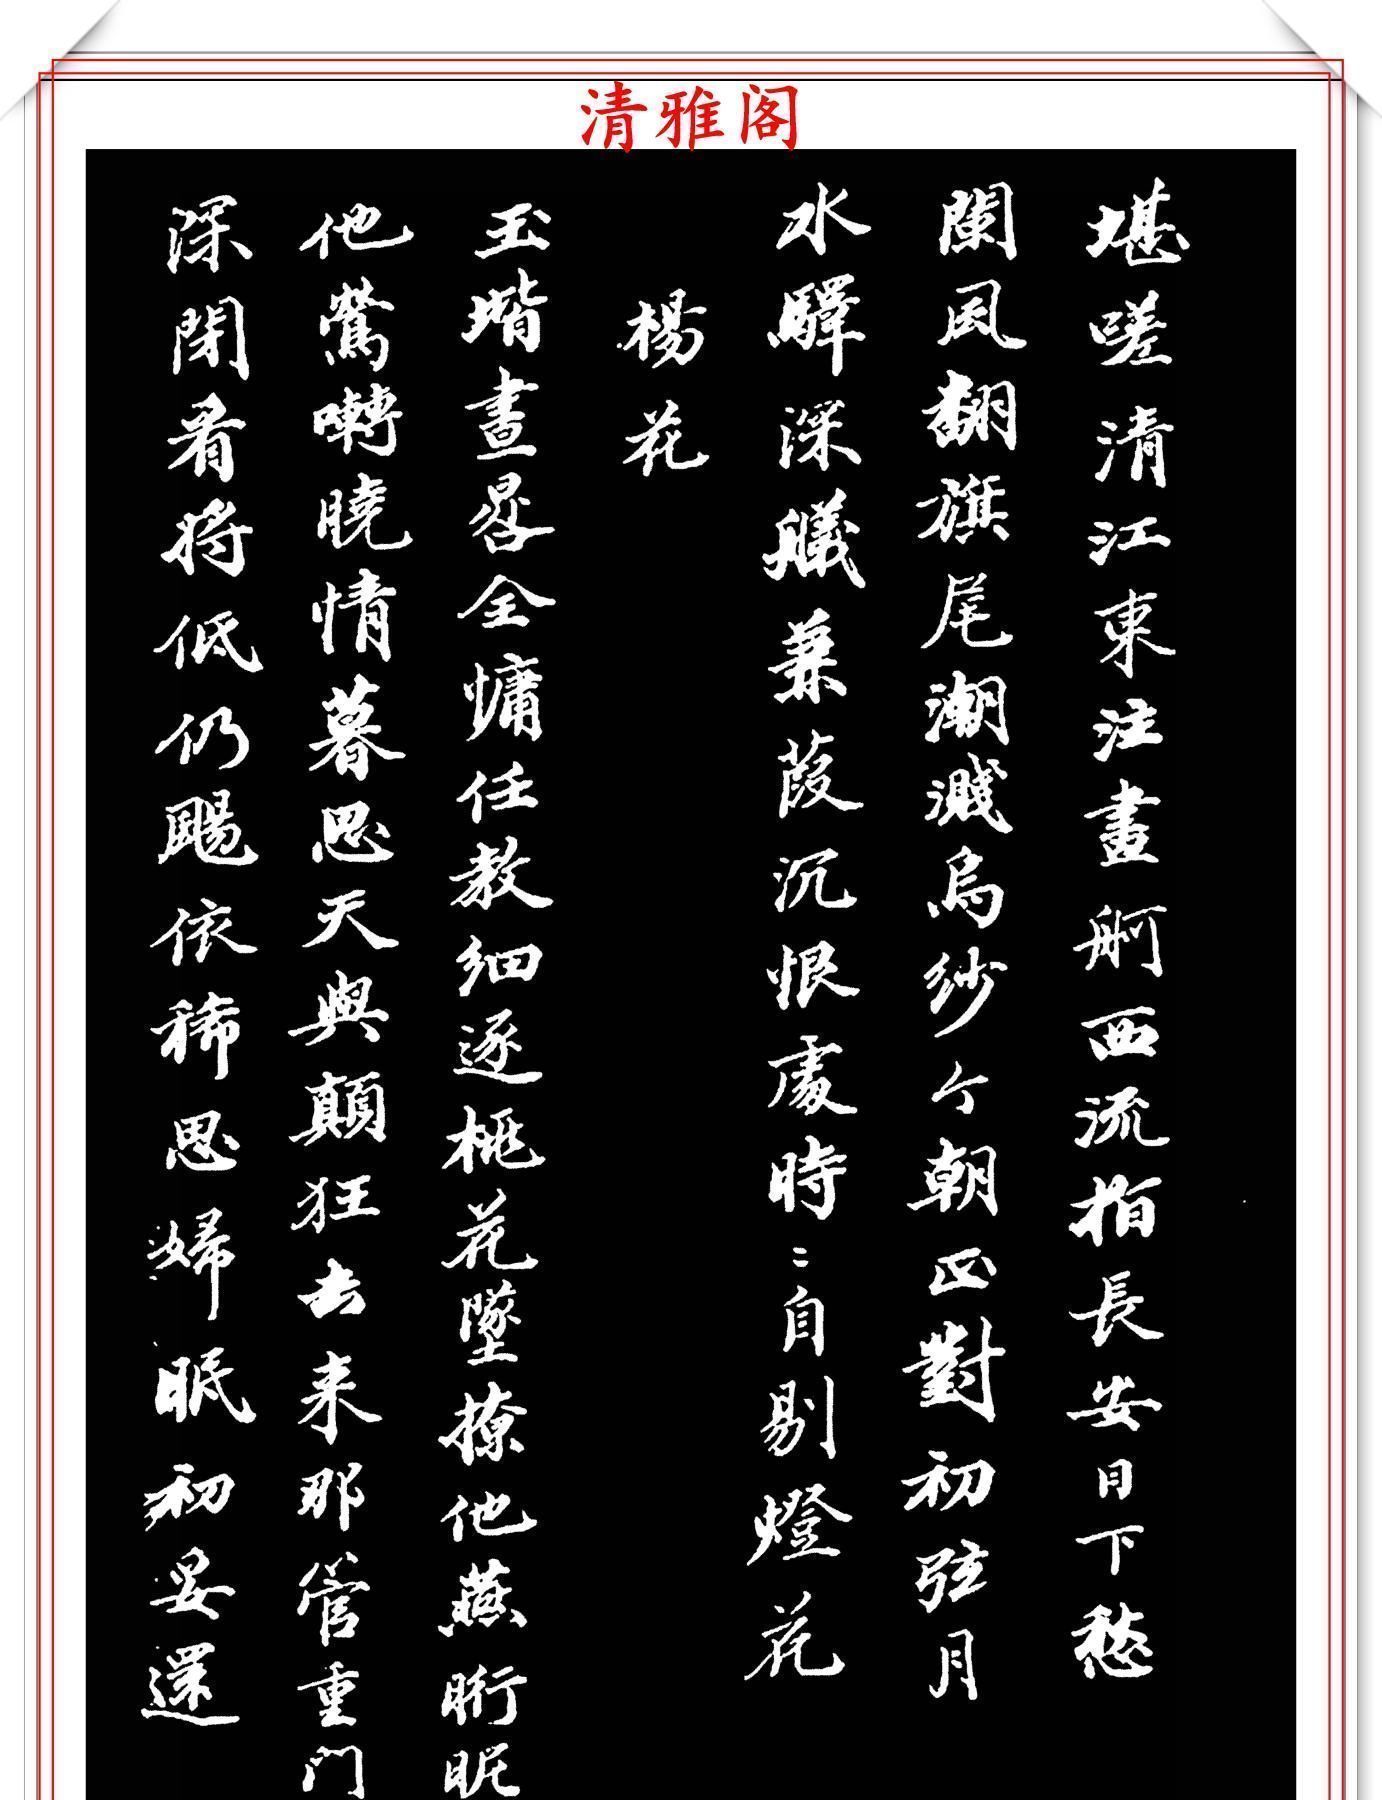 清雅阁
堪嗟清江東注畫舸西流指長安日下愁
闌風翻旗尾潮濺烏紗今朝正對初弦月
水驛深艤蒹葭沉恨處時〻自剔燈花
楊花
玉堦晝畧全慵任教細逐桃花墜撩他燕䀪眤
他鶯囀曉情暮思天與顛狂去来那管重門
深閉看將低仍颺依稀思婦眠初妥還